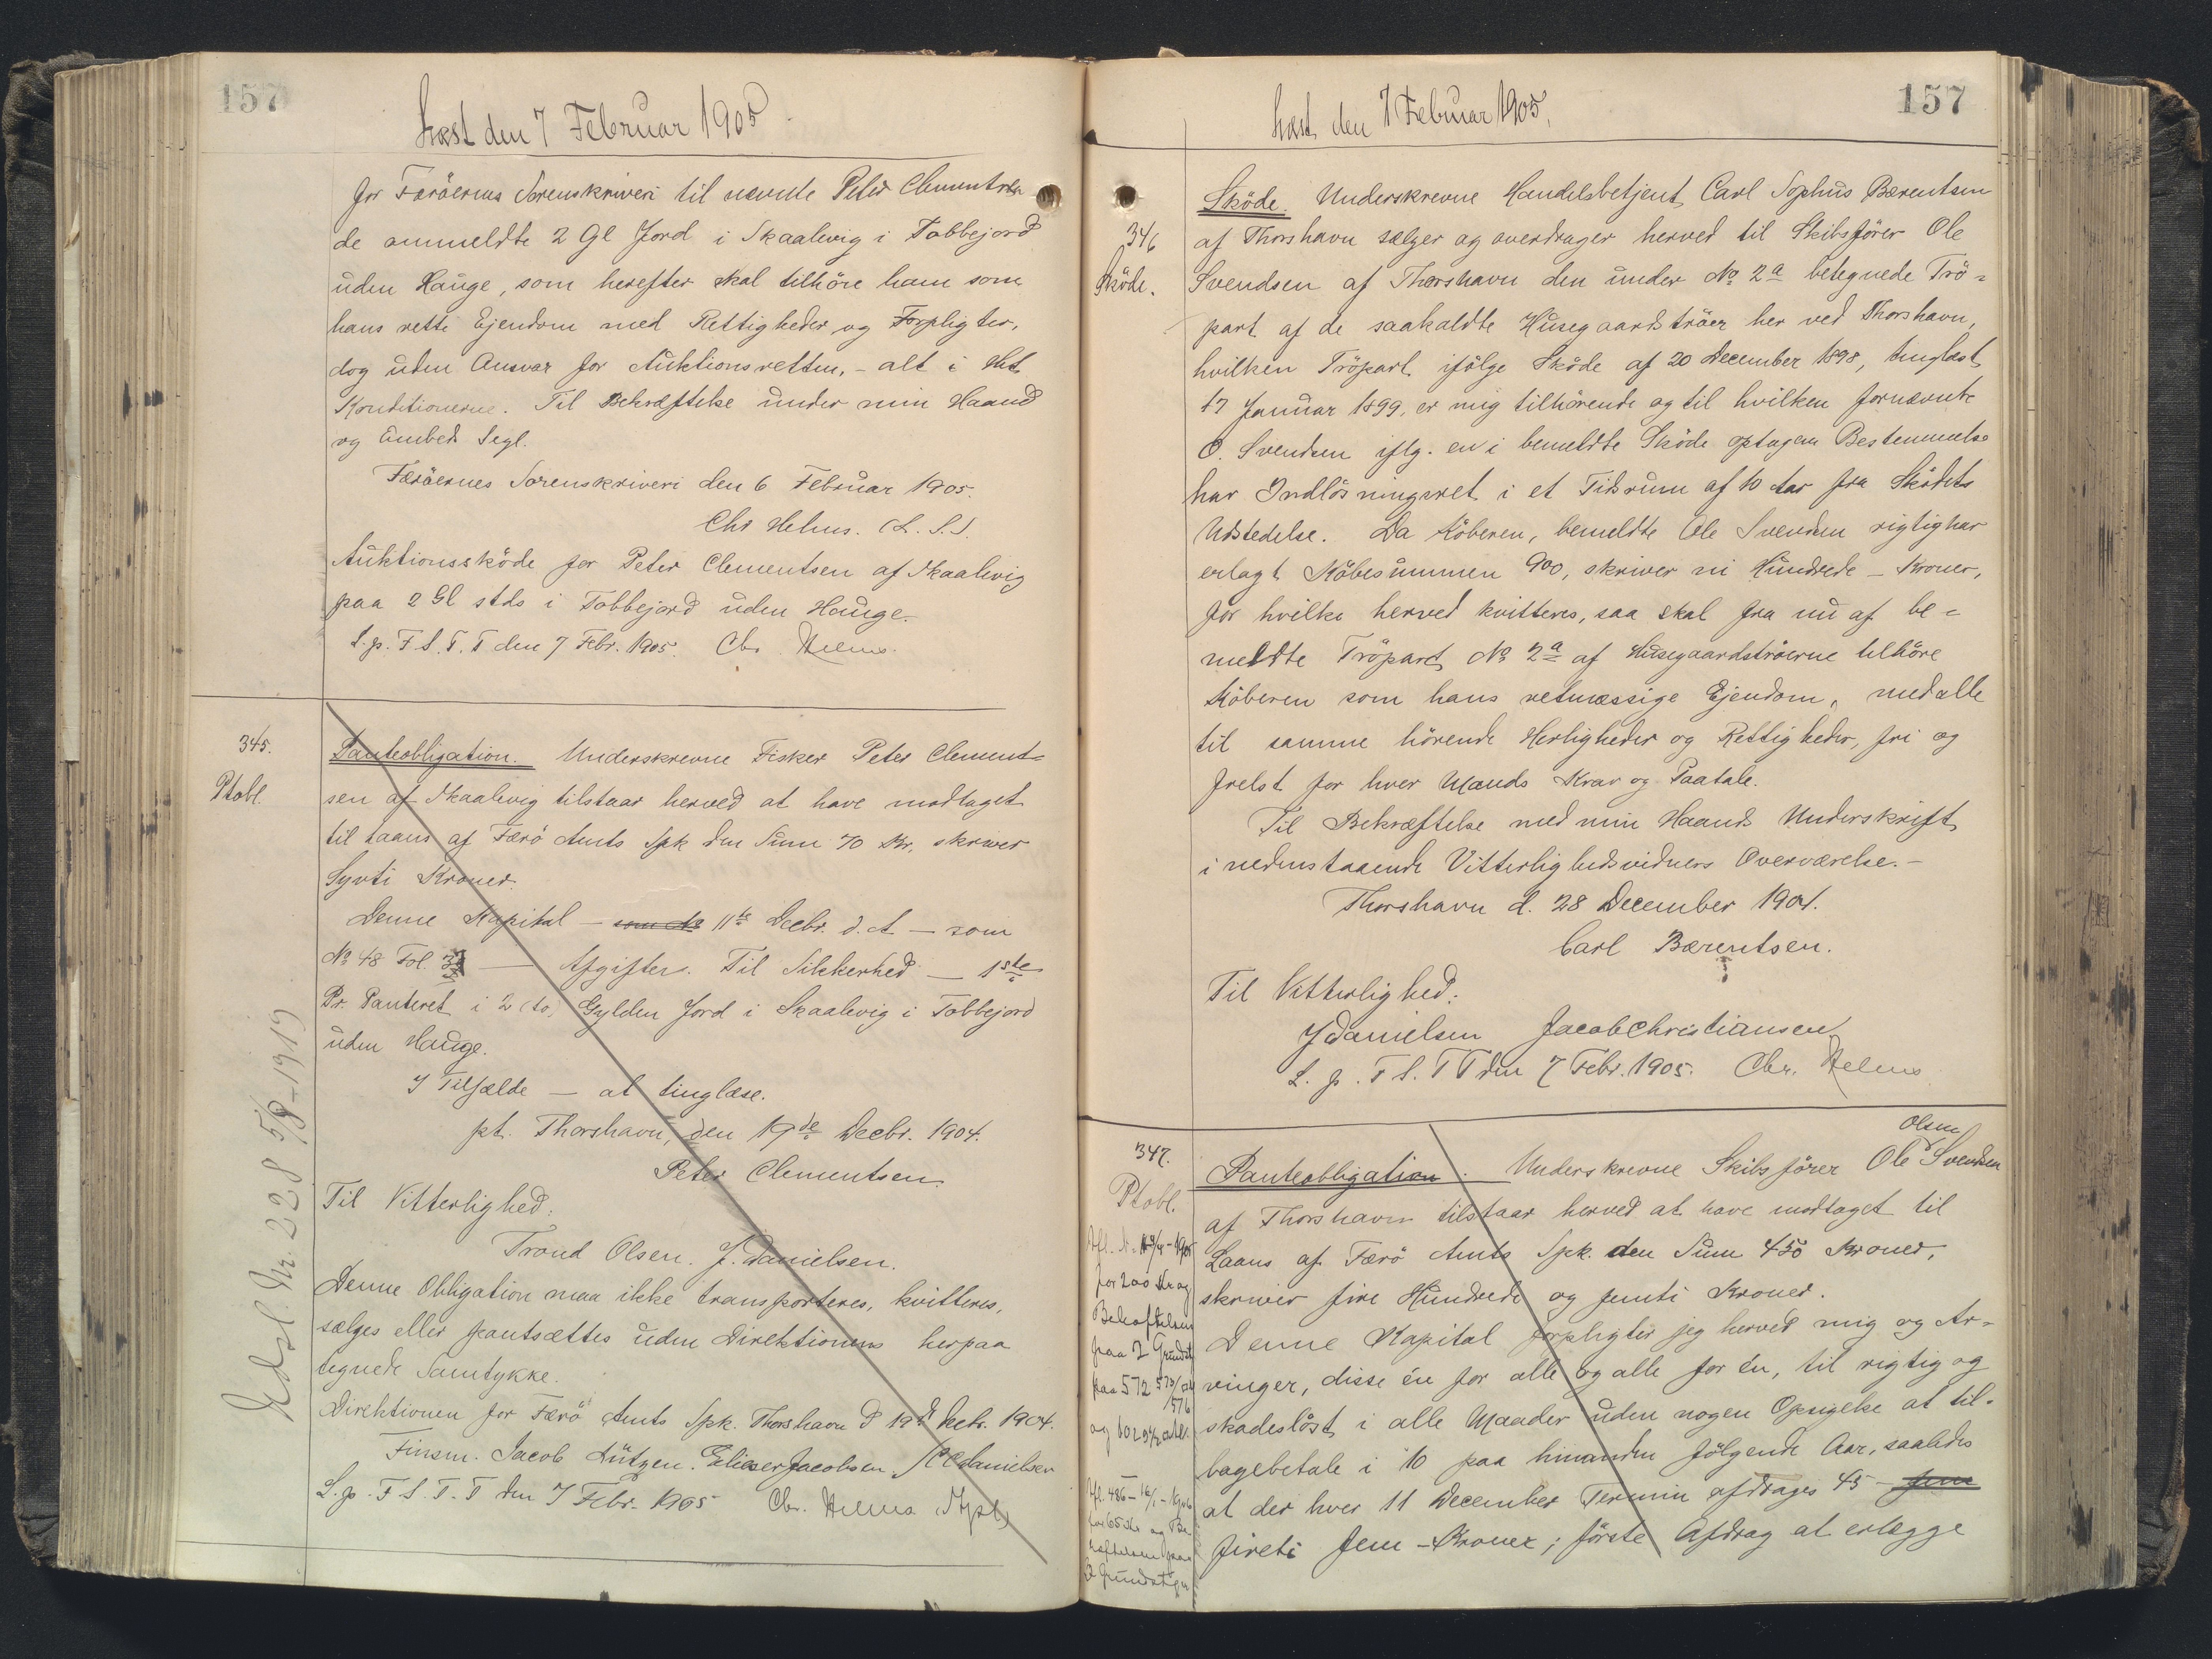 157
Læst den 7 Februar 1905
for Færöernes Sorenskriveri til nævnte Peter Clementsen
de ommeldte 2 Gl Jord i Skaalevig i Tobbejord
uden Hauge, som herefter skal tilhöre ham som
hans rette Ejendom med Rettigheder og Forpligter,
dog uden Ansvar for Auktionsretten, - alt i Hht
Konditionerne. Til Bekræftelse under min Haand
og Embeds Segl.
Færöernes Sorenskriveri den 6 Februar 1905.
Chr Helms. (L. S.).
Auktionssköde for Peter Clementsen af Skaalevig
paa 2 Gl stds i Tobbejord uden Hauge.
L. p. F S. T. T den 7 Febr. 1905. Chr. Helms.
345.
Ptobl.
Panteobligation. Underskrevne Fisker Peter Clement=
sen af Skaalevig tilstaar herved at have modtaget
til Laans af Færö Amts Spk den Sum 70 Kr. skriver
Syvti Kroner.
Denne Kapital - som de 11te Decbr. d. A - som
No 48 Fol. — Afgifter. Til Sikkerhed — 1ste
Pr. Panteret i 2 (to) Gylden Jord i Skaalevig i Tobbejord
uden Hauge.
I Tilfælde — at tinglæse.
pt. Thorshavn, den 19de Decbr. 1904.
Peter Clementsen.
Til Vitterlighed:
Trond Olsen. J. Danielsen.
Denne Obligation maa ikke transporteres, kvitteres,
sælges eller pantsættes uden Direktionens herpaa
tegnede Samtykke.
Direktionen for Færö Amts Spk. Thorshavn d 19 Decbr. 1904.
Finsen. Jacob Lützen. Elieser Jacobsen. Danielsen
L. p. F S. T. T den 7 Febr. 1905 Chr. Helms
Udsl. Nr. 228 5/8-1919
157
Læst den 7 Februar 1905.
346
Sköde.
Sköde. Underskrevne Handelsbetjent Carl Sophus Bærentsen
af Thorshavn sælger og overdrager herved til Skibsförer Ole
Svendsen af Thorshavn den under No 2a betegnede Trö=
part af de saakaldte Husegaardströer her ved Thorshavn,
hvilken Tröpart ifölge Sköde af 20 December 1898, tinglæst
17 Januar 1899, er mig tilhörende og til hvilken fornævnte
O. Svendsen iflg. en i bemeldte Sköde optagen Bestemmelse
har Indlösningsret i et Tidsrum af 10 Aar fra Sködets
Udstedelse. Da Köberen, bemeldte Ole Svendsen rigtig har
erlagt Köbesummen 900, skriver ni Hundrede - Kroner,
for hvilke herved kvitteres, saa skal fra nu af be=
meldte Tröpart No 2a af Husegaardströerne tilhöre
Köberen som hans retmæssige Ejendom, med alle
til samme hörende Herligheder og Rettigheder, fri og
frelst for hver Mands Krav og Paatale.
Til Bekræftelse med min Haands Underskrift
i nedenstaaende Vitterlighedsvidners Overværelse.-
Thorshavn d. 28 December 1904.
Carl Bærentsen.
Til Vitterlighed:
J Danielsen Jacob Christiansen
L. p. F S. T T den 7 Febr. 1905. Chr. Helms
347.
Ptobl.
Olsen
Panteobligation. Underskrevne Skibsförer Ole Svendsen
af Thorshavn tilstaar herved at have modtaget til
Laans af Færö Amts Spk. den Sum 450 Kroner,
skriver fire Hundrede og femti Kroner.
Denne Kapital forpligter jeg herved mig og Ar=
vinger, disse én for alle og alle for én, til rigtig og
skadeslöst i alle Maader uden nogen Opsigelse at til-
bagebetale i 10 paa hinanden fölgende Aar, saaledes
at der hver 11 December Termin afdrages 45 - fem
fireti fem - Kroner; förste Afdrag at erlægge
for 200 Kr og
Behæftelsen
paa 2 Grundst
paa 572